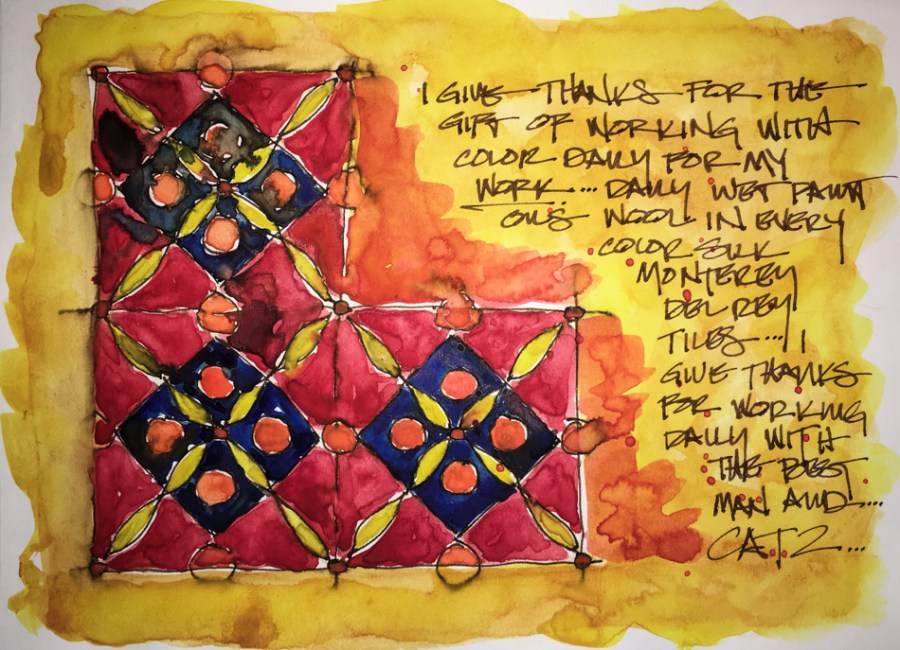 I GIVE THANKS FOR THE
GIFT OF WORKING WITH
COLOR DAILY FOR MY
WORK... DAILY WET PAINT
OILS WOOL IN EVERY
COLOR SILK
MONTEREY
DEL REY
TILES... I
GIVE THANKS
FOR WORKING
DAILY WITH
THE BEST
MAN AND...
CATZ...